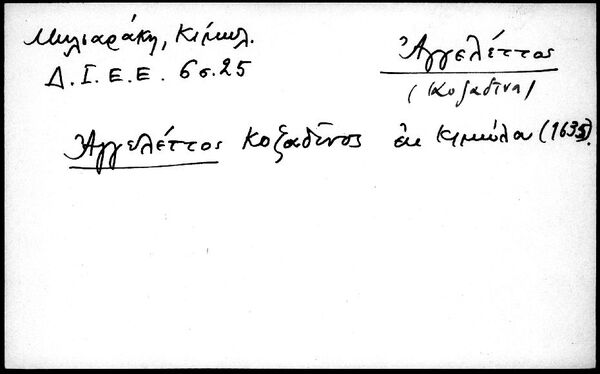 Μηλιαράκη, Κίμωλ.
Δ.Ι.Ε.Ε. 6 σ. 25
Ἀγγελέττος
(Κοζαδίνα)
Ἀγγελέττος Κοζαδῖνος ἐκ Κιμώλου (1635).